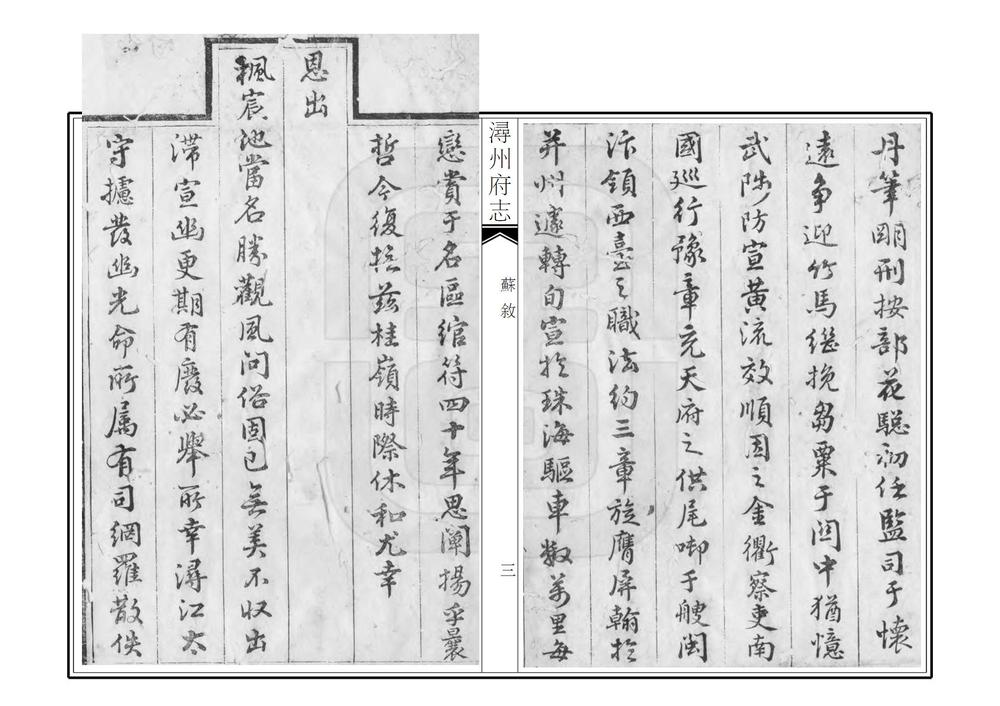 丹筆明刑按部花驄初任監司于懷
遠爭迎竹馬繼挽芻粟于関中猶憶
武陟防宣黃流效順因之金衢察吏南
國廵行豫章充天府之供尾啣于艘閩
汴領西臺之職法約三章旋膺屏翰於
并州遽轉旬宣於珠海驅車数萬里每
潯州府志
蘇敘
三
戀賞于名區綰符四十年思闡揚乎曩
哲今復撫茲桂嶺時際休和尤幸
恩出
楓宸地當名勝觀風問俗固已無美不収出
滯宣幽更期有廢必舉所幸潯江太
守攄發幽光命所属有司網羅散佚